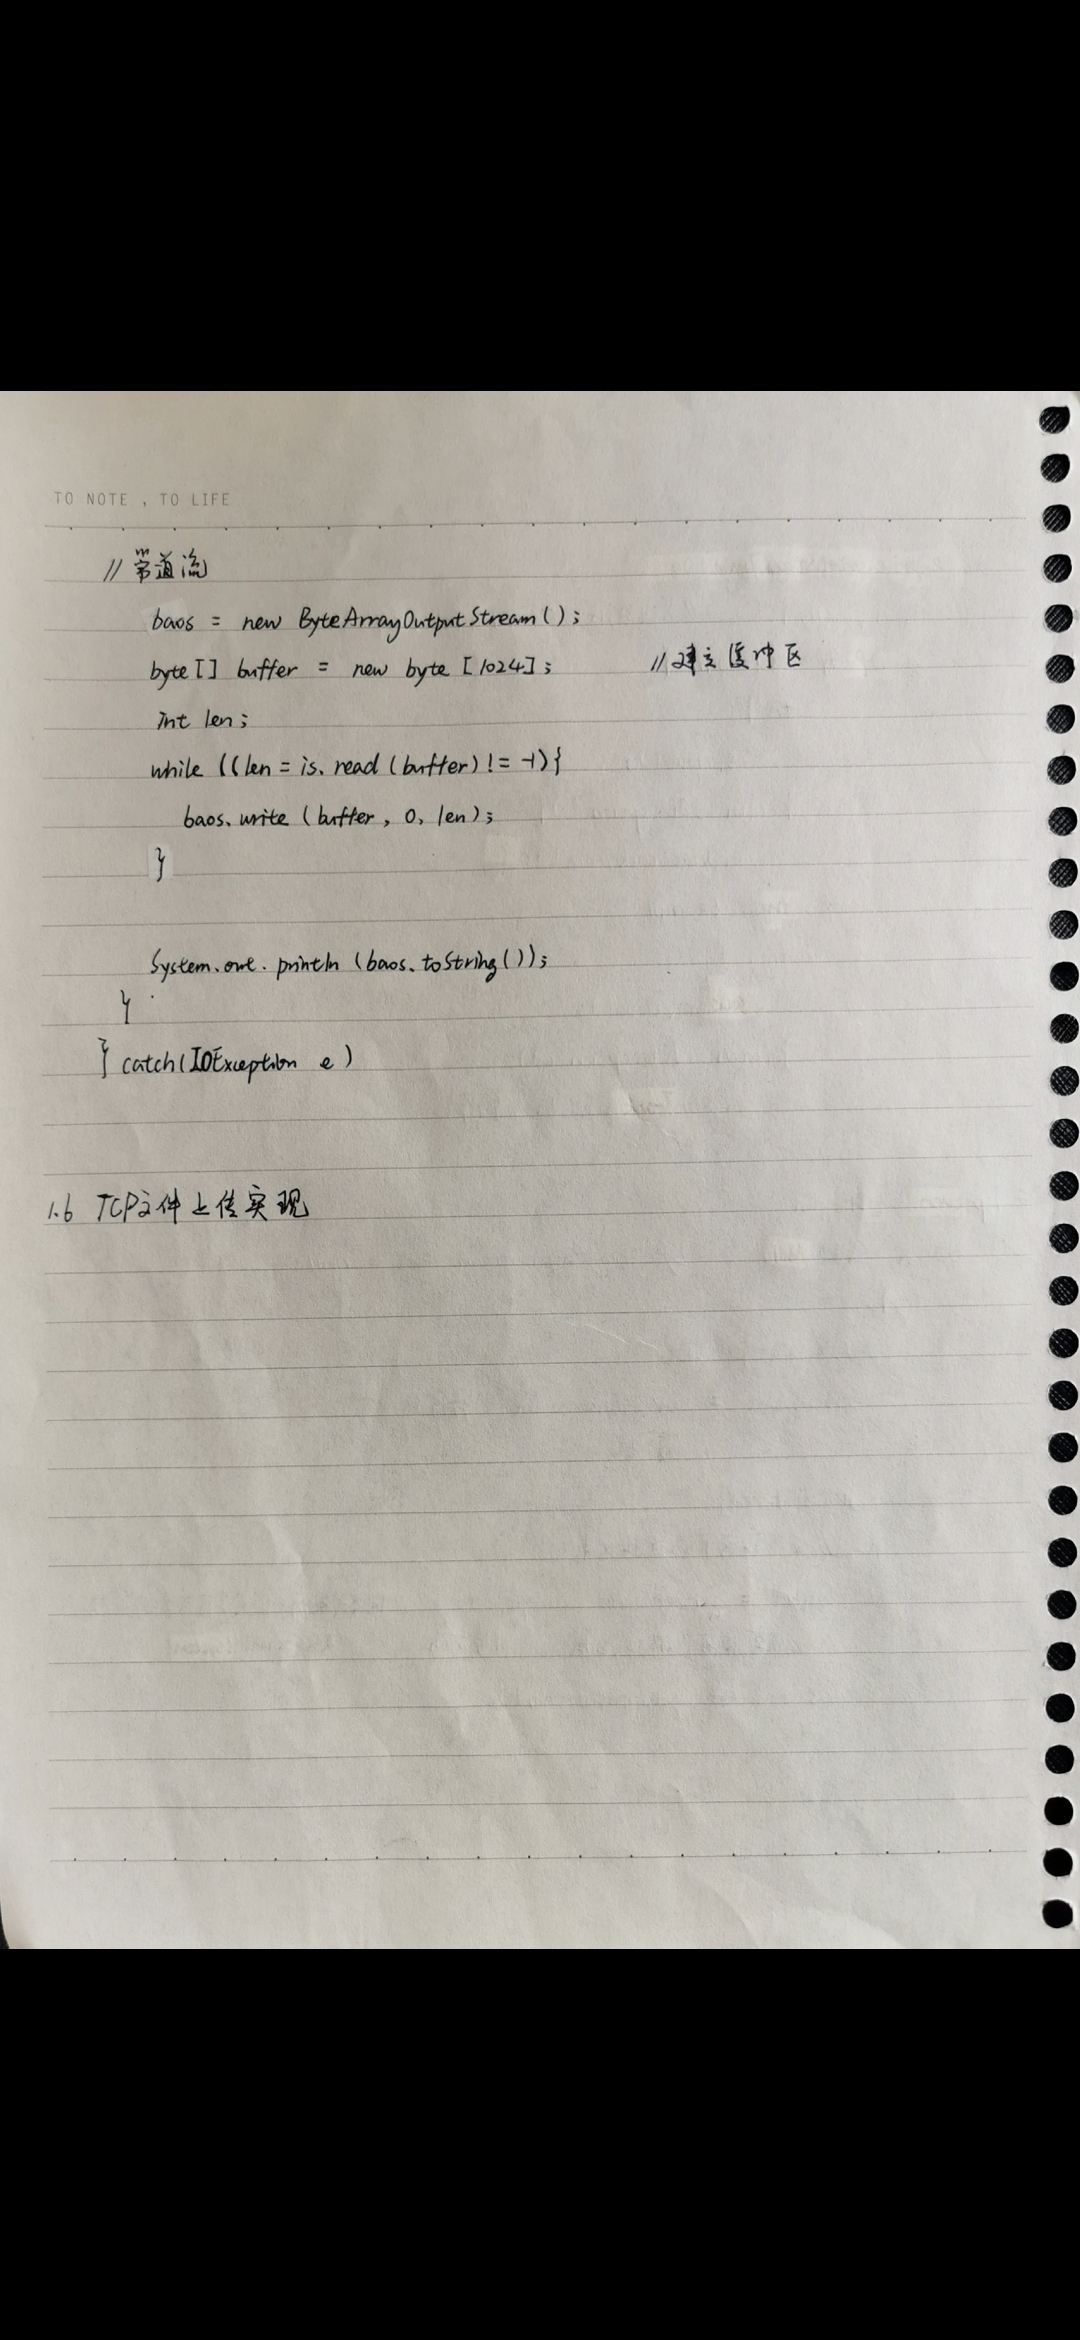 TO NOTE , TO LIFE
// 管道流
baos = new ByteArrayOutputStream();
byte[] buffer = new byte [1024]; //建立缓冲区
int len;
while ((len = is.read (buffer) != -1){
baos.write (buffer, 0, len);
}
System.out.println (baos.toString());
}
} catch(IOException e)
1.6 TCP文件上传实现